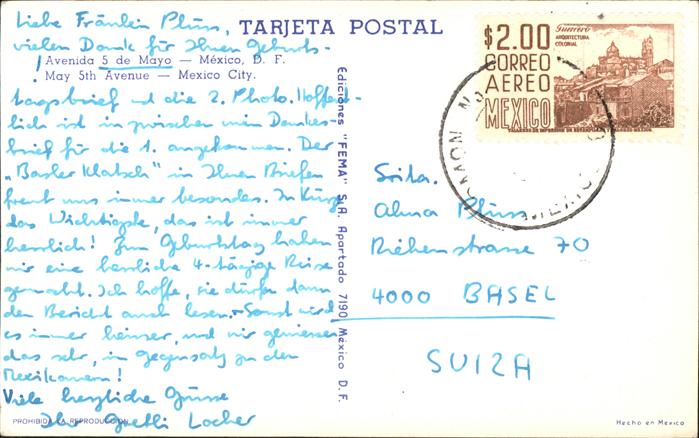 TARJETA POSTAL
Avenida 5 de Mayo — México, D. F.
May 5th Avenue — Mexico City.
Liebe Fräulein Plüss,
vielen Dank für Ihren Geburts-
tagsbrief und die 2. Photo. Hoffent-
lich ist in zwischen mein Dankes-
brief für die 1. angekommen. Der
"Basler Klatsch" in Ihren Briefen
freut uns immer besonders. In Kürze
das Wichtigste, das ist immer
herrlich! Zum Geburtstag haben
wir eine herrliche 4-tägige Reise
gemacht. Ich hoffe, sie dürfen dann
den Bericht auch lesen. - Sonst wird
es immer heisser, und wir geniessen
das sehr, in gegensatz zu den
Mexikanern!
Viele herzliche Grüsse
Ihr Gretli Locher
PROHIBIDA LA REPRODUCCION
Ediciones "FEMA" S.A. Apartado 7190 México D. F.
$2.00
CORREO
AEREO
MEXICO
Guerrero
ARQUITECTURA
COLONIAL
Srita.
Alma Plüss
Riehenstrasse 70
4000 BASEL
SUIZA
Hecho en Mexico